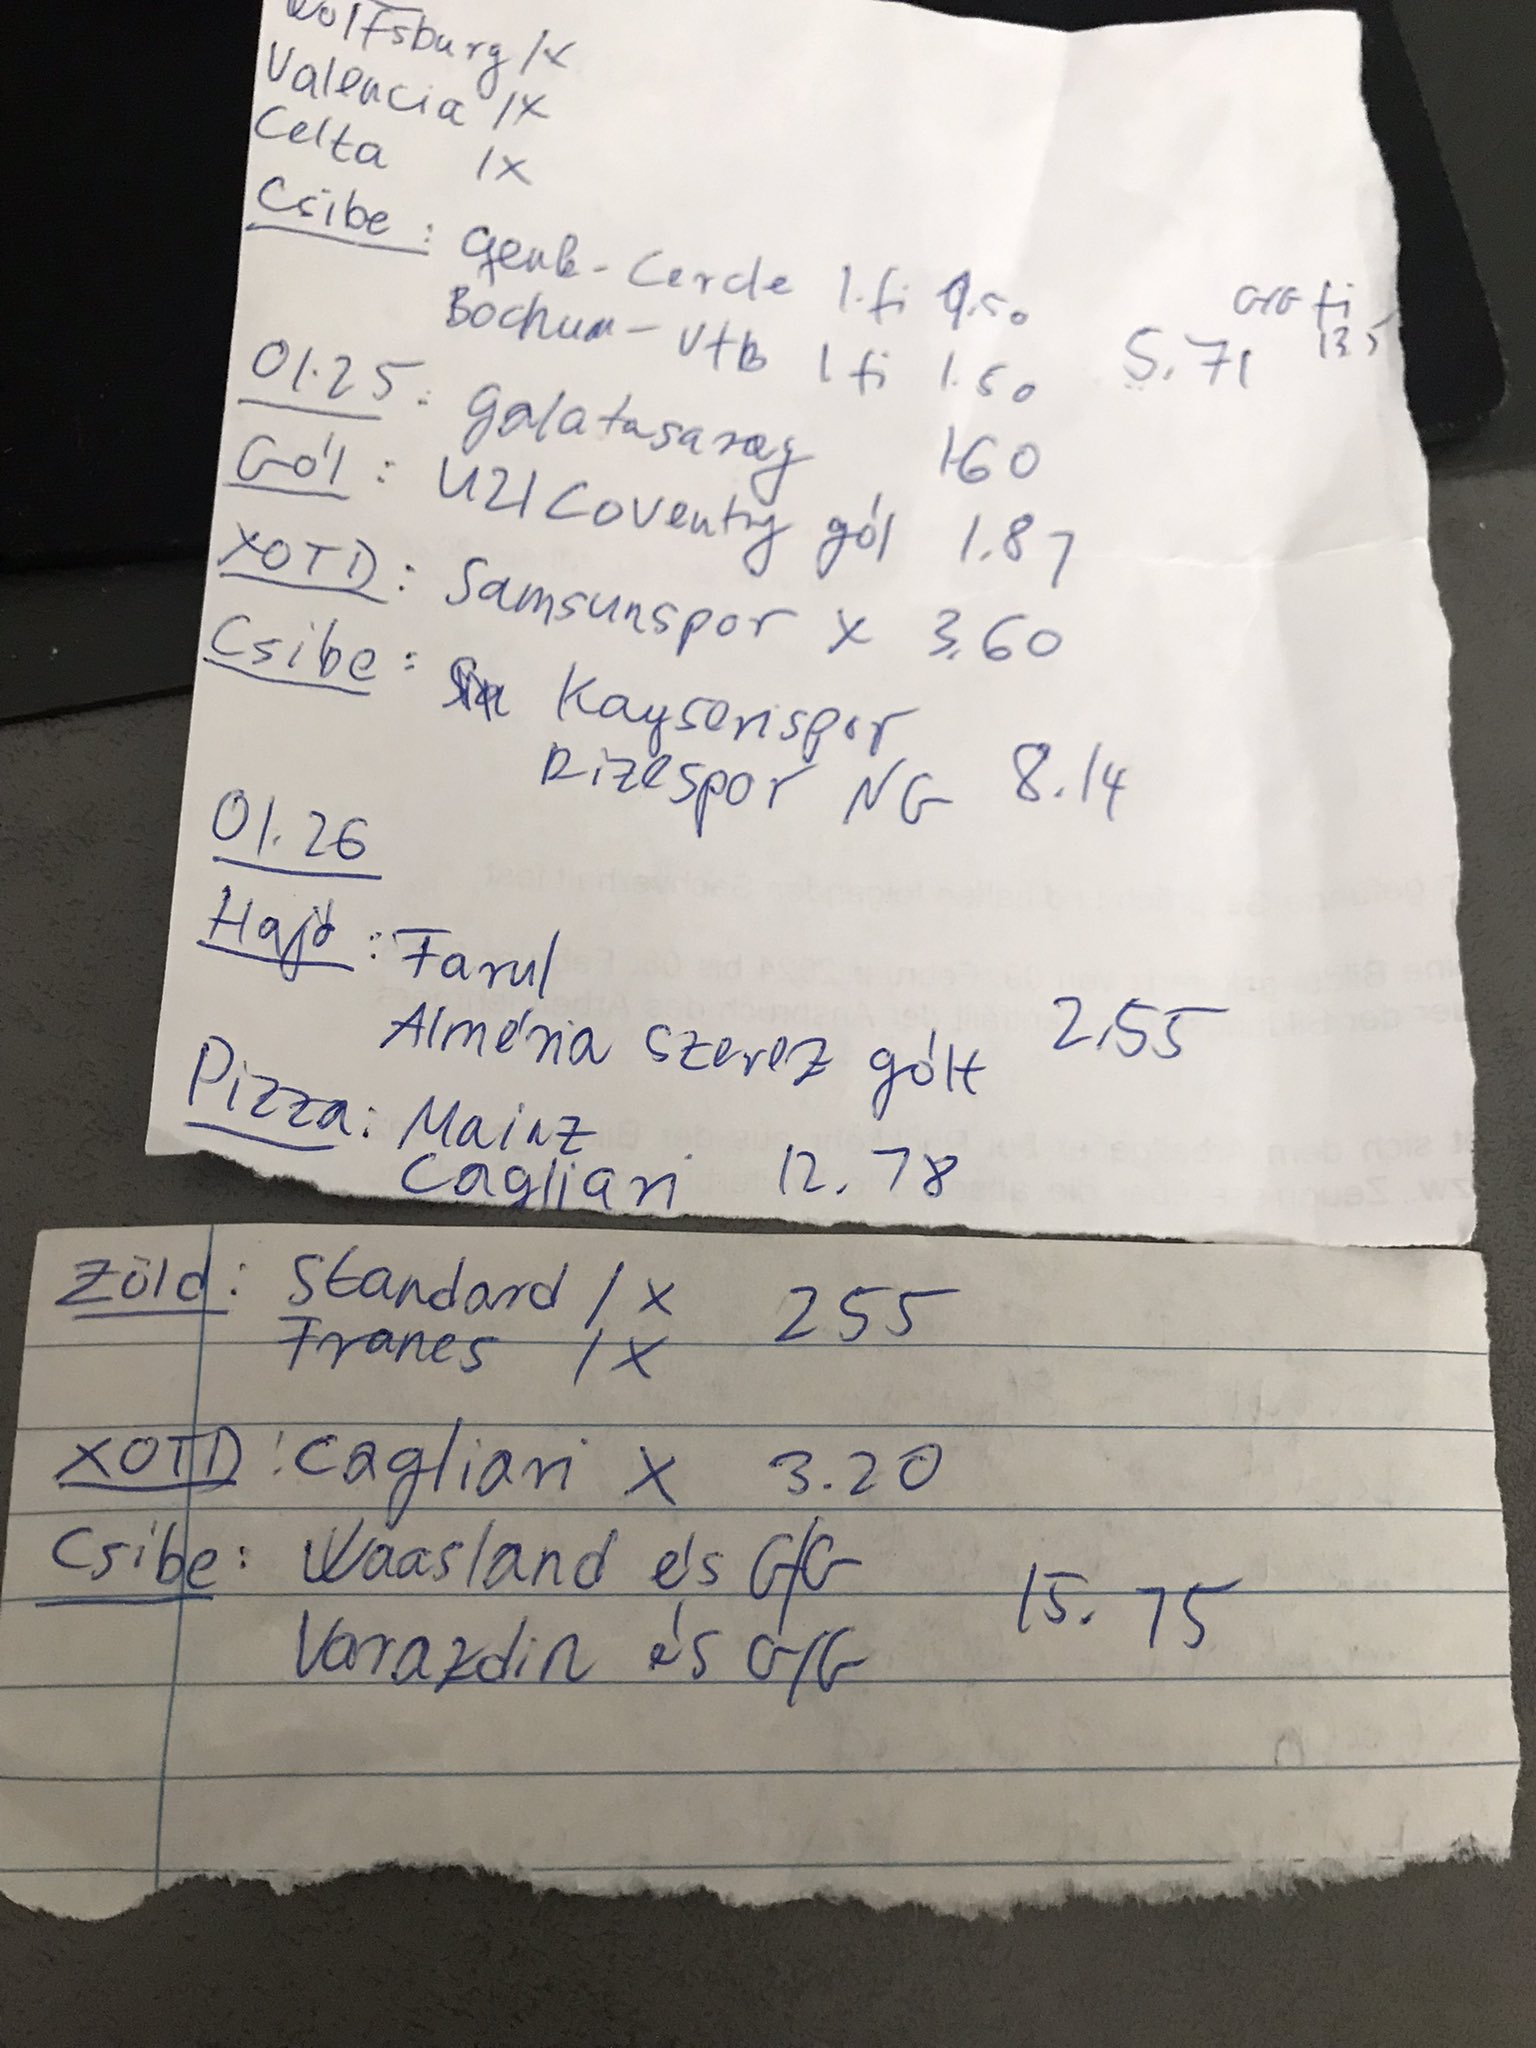 Wolfsburg 1X
Valencia 1X
Celta 1X
Csibe: Genk-Cercle 1.fi 1.50
GG fi
Bochum-Vfb 1 fi 1.50 5.71 135
01.25: Galatasaray 1.60
Gól: U21 Coventry gól 1.87
XOTD: Samsunspor X 3.60
Csibe: Kayserispor
Rizespor NG 8.14
01.26
Hajó: Farul
Alméria szerez gólt 2.55
Pizza: Mainz
Cagliari 12.78
Zöld: Standard 1X 255
Franes 1X
XOTD: Cagliari X 3.20
Csibe: Waasland és G/G
Varazdin és G/G 15.75